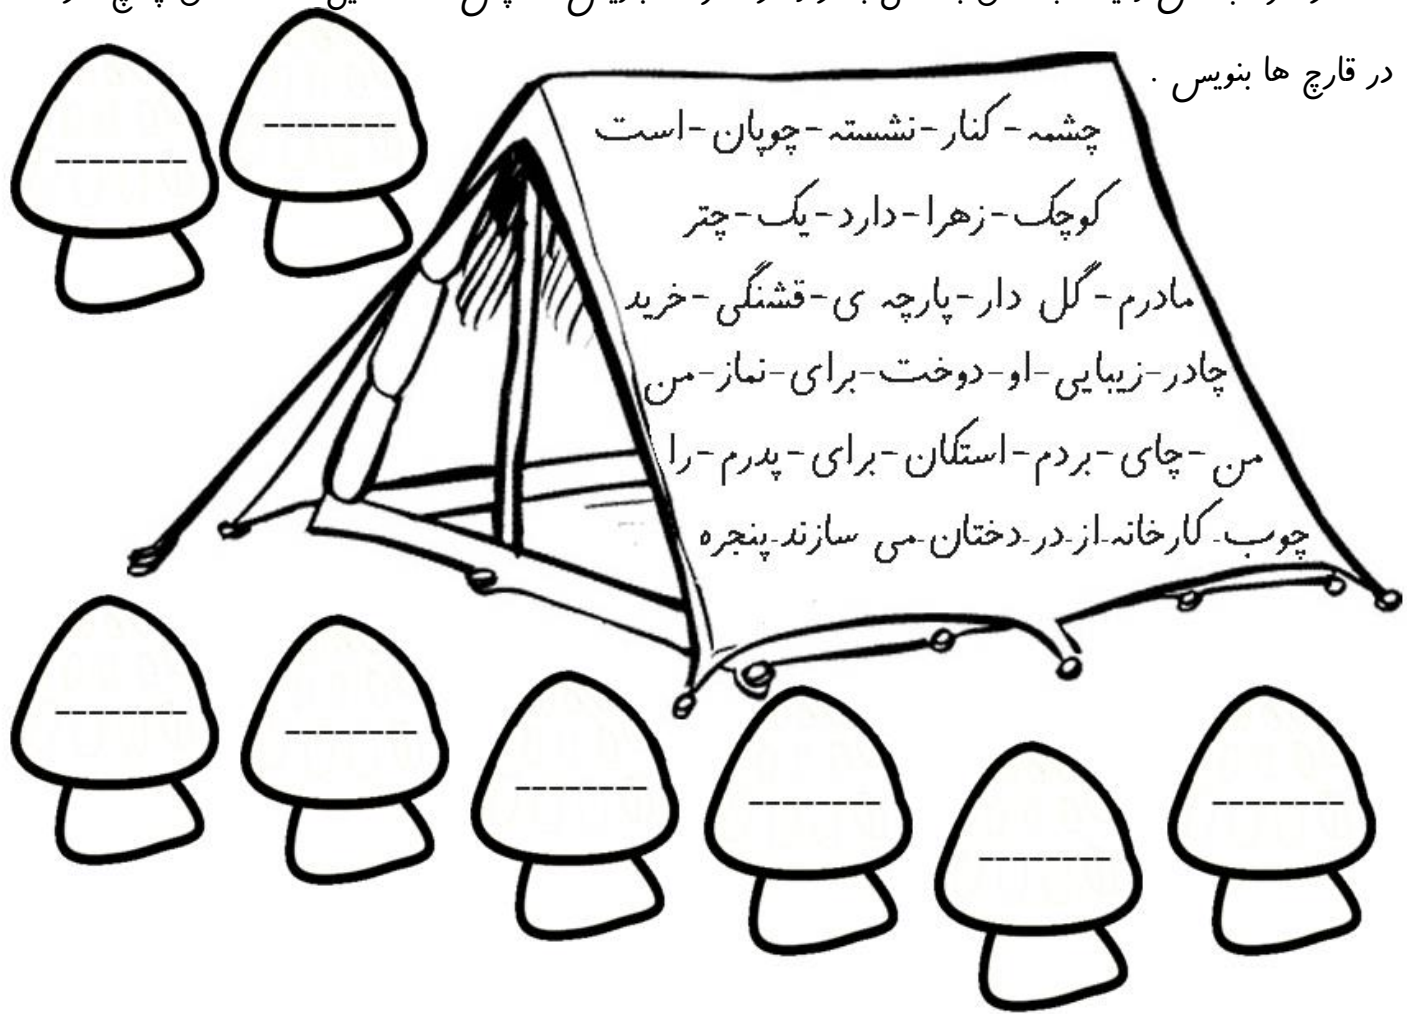 در قارچ ها بنویس .
چشمه - کنار - نشسته - چوپان - است
کوچک - زهرا - دارد - یک - چتر
مادرم - گل دار - پارچه ی - قشنگی - خرید
چادر - زیبایی - او - دوخت - برای - نماز - من
من - چای - بردم - استکان - برای - پدرم - را
چوب - کارخانه - از - در - دختان - می سازند - پنجره